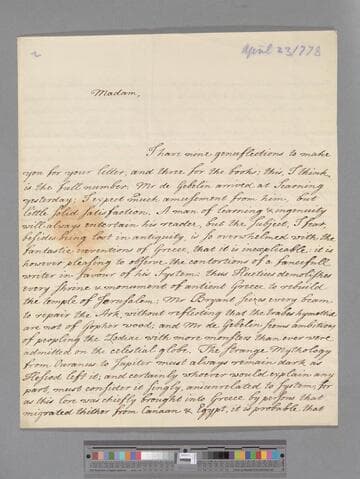 2
April 23 1778
Madam,
I have nine genuflections to make
you for your letter, and three for the books; this, I think,
is the full number. Mr de Gebelin arrived at Searning
yesterday; I expect much amusement from him, but
little solid satisfaction. A man of learning & ingenuity
will always entertain his reader, but the Subject, I fear
besides being lost in antiquity, is so overwhelmed with the
fantastic inventions of Greece, that it is inexplicable. It is
however pleasing to observe the contortions of a fancifull
writer in favour of his System: thus Huetius demolishes
every shrine & monument of antient Greece to rebuild
the temple of Jerusalem; Mr Bryant seizes every beam
to repair the Ark, without reflecting that the trabes hymettiæ
are not of Gopher wood; and Mr de Gebelin seems ambitious
of peopling the Zodiac with more monsters than ever were
admitted on the celestial globe. The strange Mythology
from Ouranus to Jupiter must always remain dark as
Hesiod left it; and certainly whoever would explain any
part, must consider it singly, and unrelated to Systems; for
as this lore was chiefly brought into Greece by persons that
migrated thither from Canaan & Egypt, it is probable that